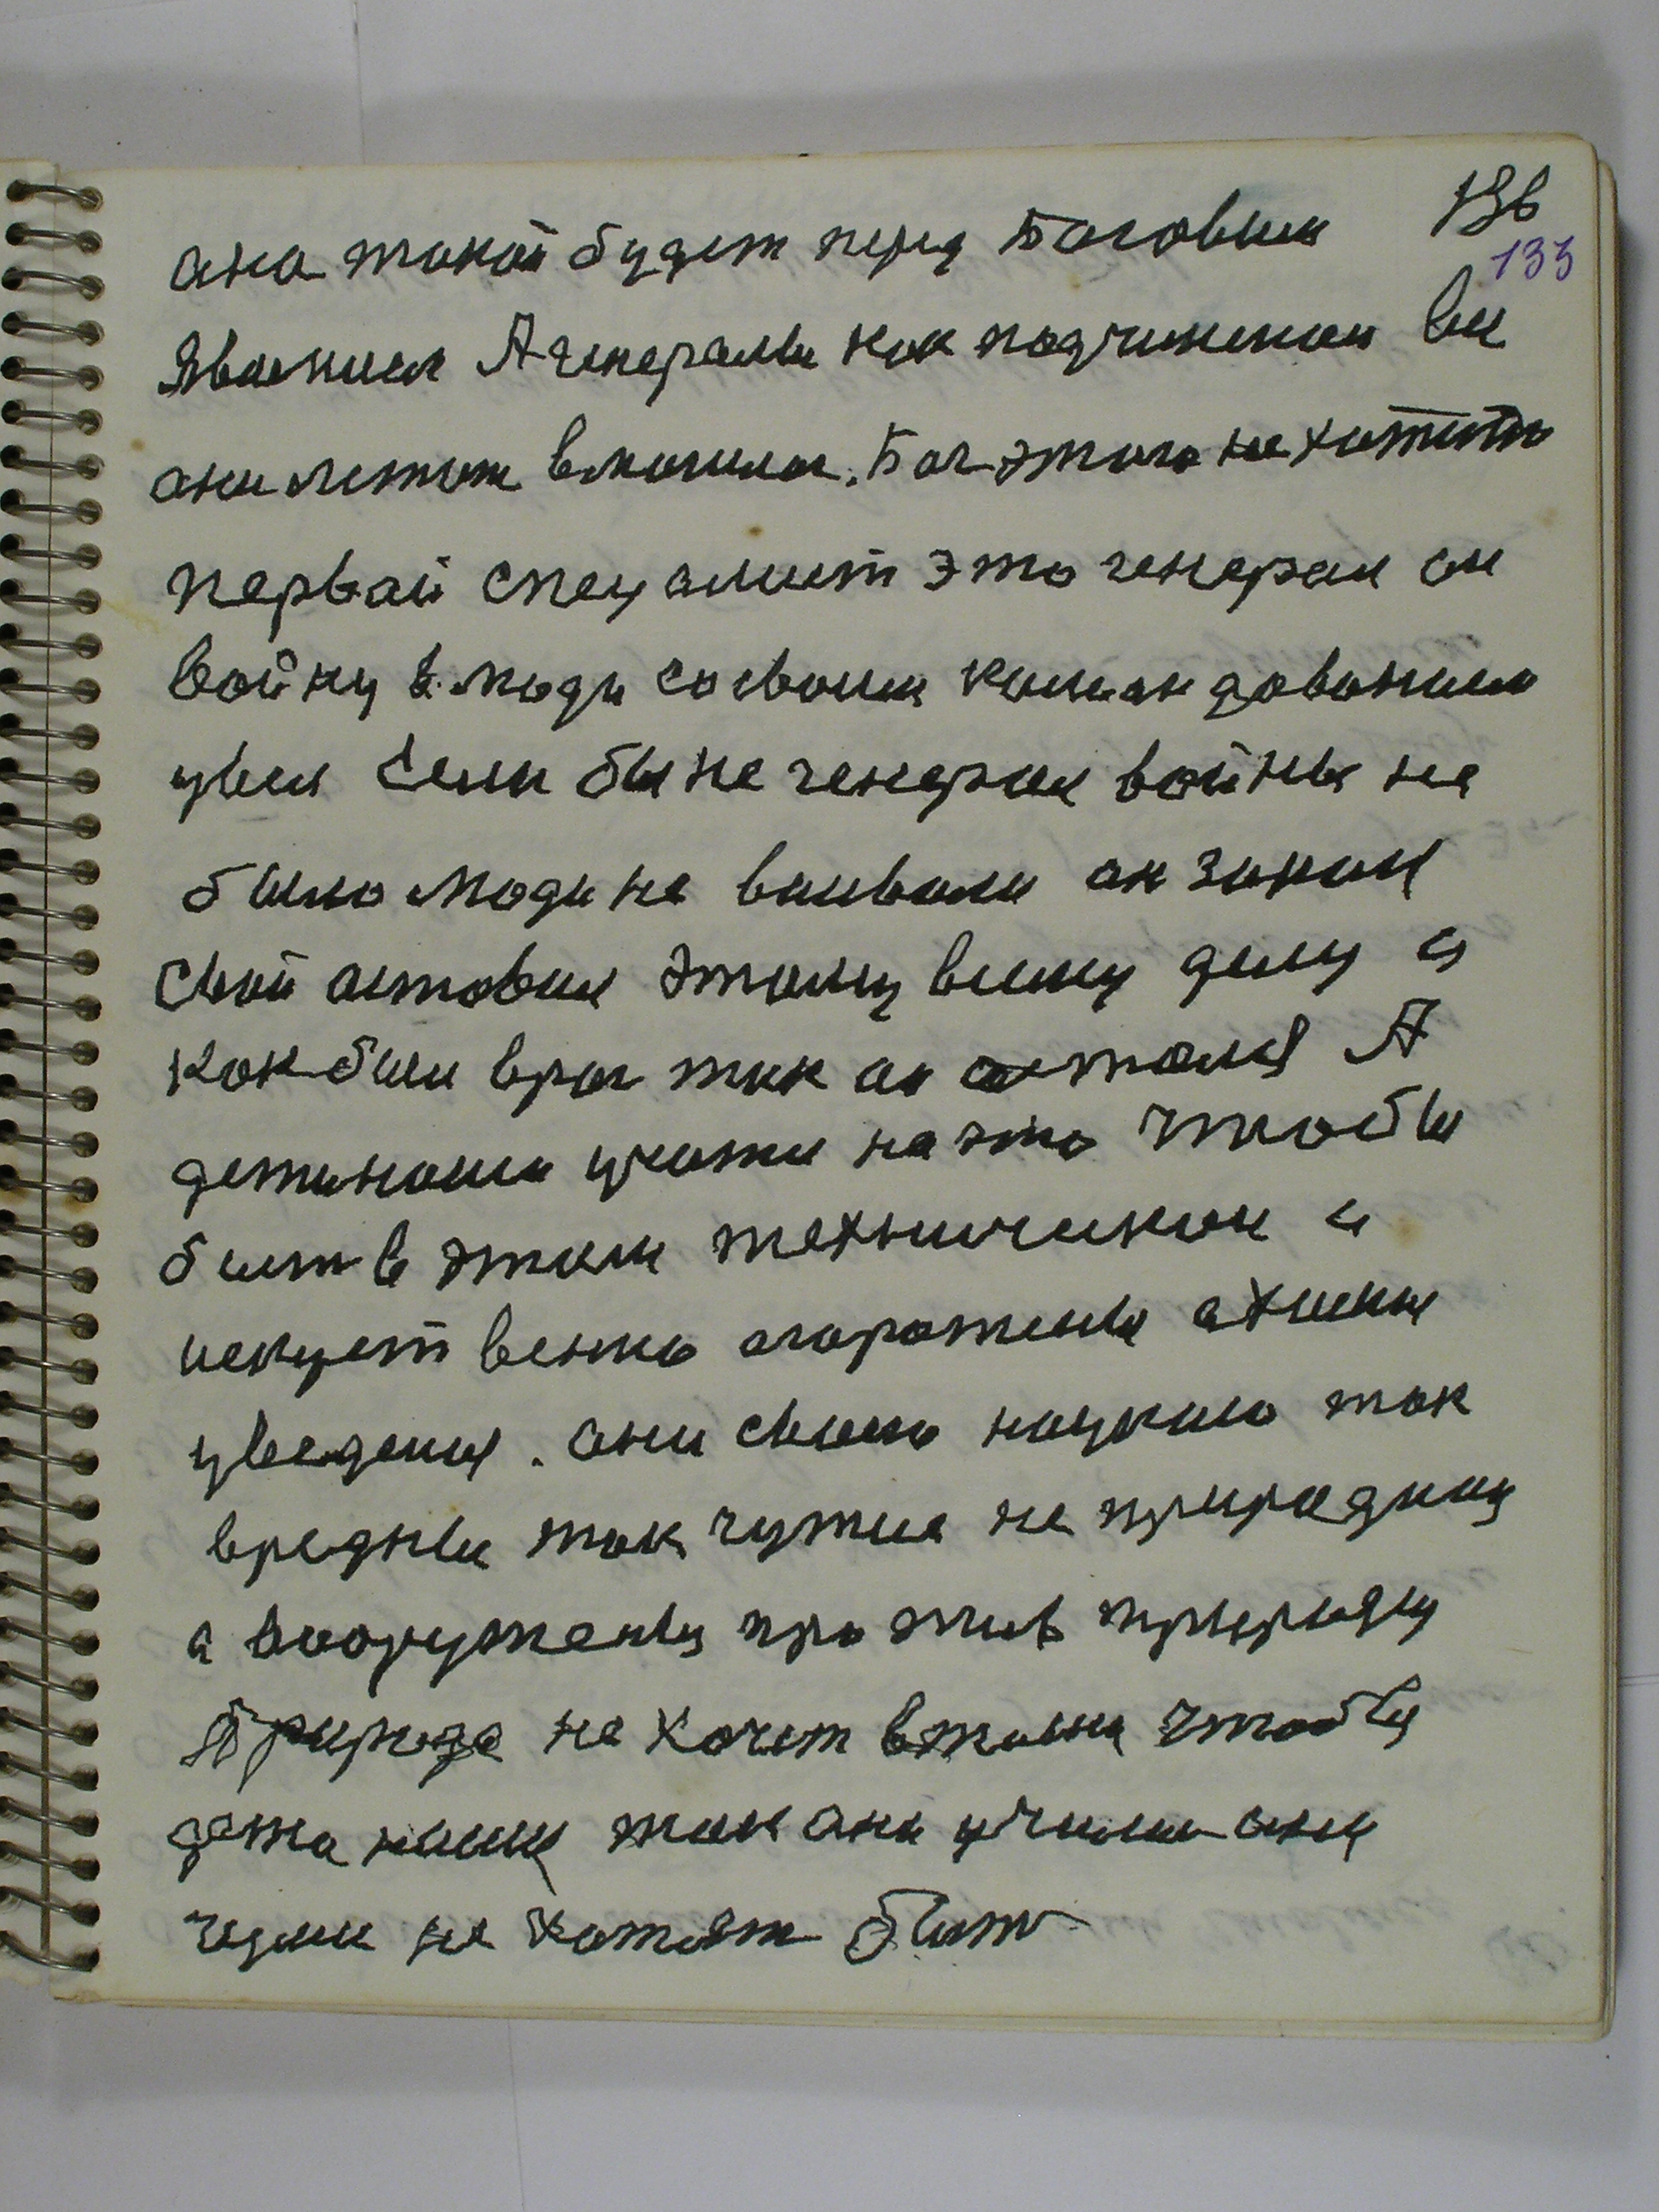 136
133
ана такой будет перед Баговым
званием А генералы как подчиненаи вы
ани летят в могилы. Бог этого не хотить
первай спецалист это генерал он
войну в люди со своим командованием
увел Если бы не генерал войны не
было люди не воивали он закон
свой оставил этому всему делу и
как был враг так он остался А
дети наши учати на это чтобы
быт в этом техническом и
искуственно огорожены а химия
уведения. они своею наукаю так
вредны так чужие не природы
а вооружены против природы
Природа не хочет втакия чтобы
дета наши так они училис они
чеди не хотят быть